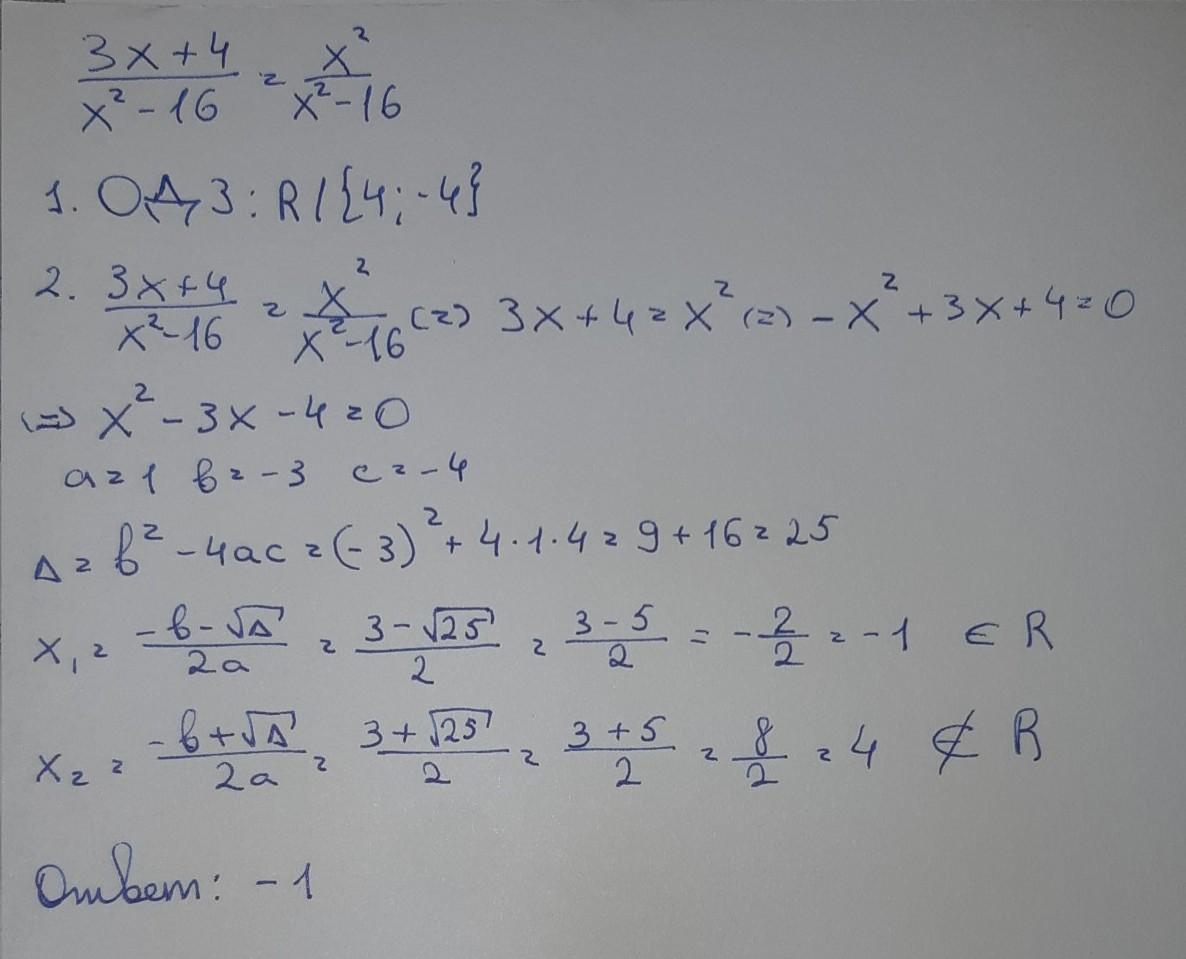 3x+4/x²-16 = x²/x²-16
1. ОДЗ: R/{4;-4}
2. 3x+4/x²-16 = x²/x²-16 (=) 3x+4=x² (=) -x²+3x+4=0
<=> x²-3x-4=0
a=1 b=-3 c=-4
Δ=b²-4ac=(-3)²+4·1·4=9+16=25
x₁=-b-√Δ/2a=3-√25/2=3-5/2=-2/2=-1 ∈ R
x₂=-b+√Δ/2a=3+√25/2=3+5/2=8/2=4 ∉ R
Ответ: -1